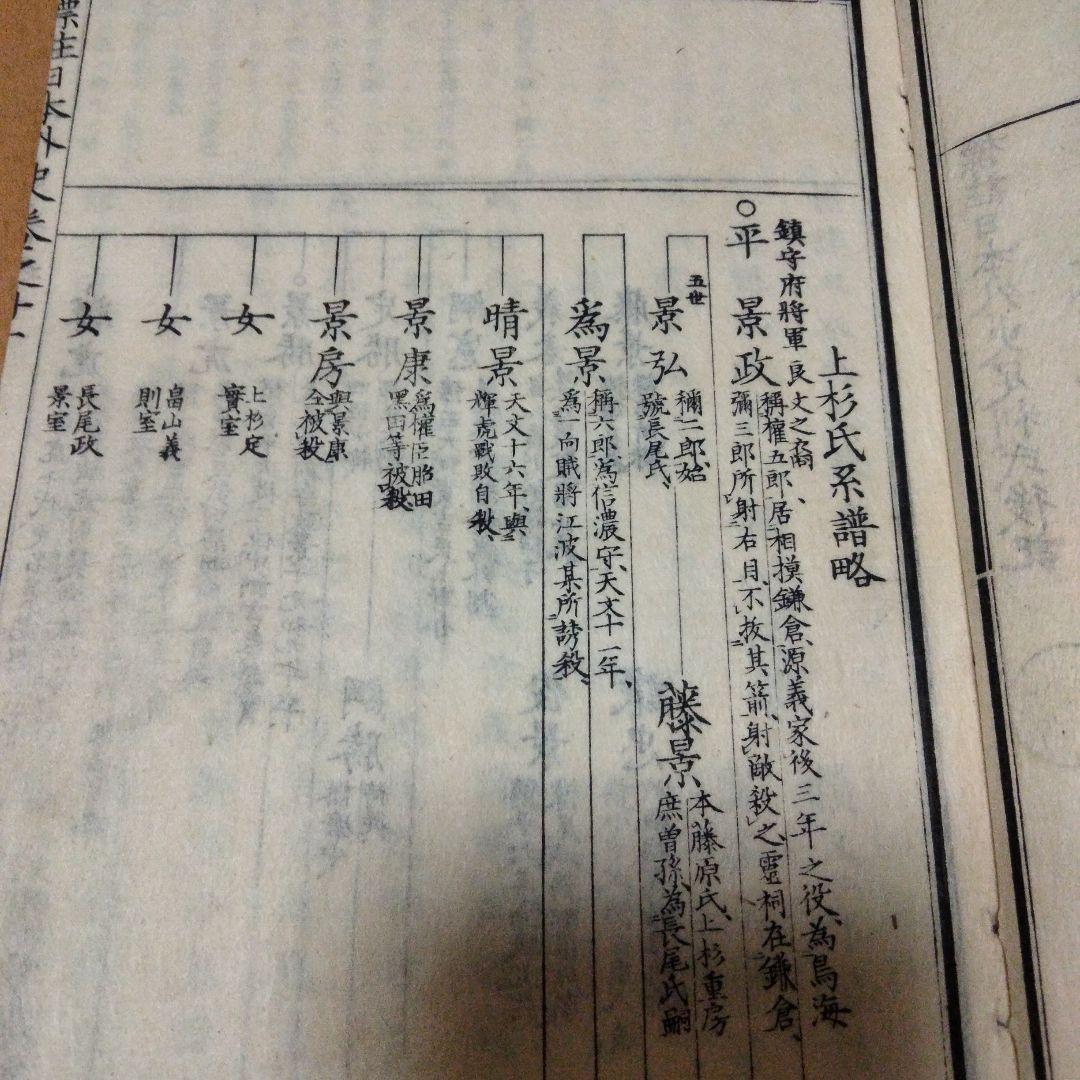 上杉氏系譜略
鎮守府將軍良文之裔、
○平景政
稱權五郎、居相模鎌倉、源義家後三年之役、為鳥海
彌三郎所射右目、不抜其箭、射敵殺之、靈祠在鎌倉、
五世
景弘
稱二郎、始
號長尾氏、
藤景
本藤原氏、上杉重房
庶曽孫、為長尾氏嗣
為景
稱六郎、為信濃守、天文十一年、
為一向賊將江波某所誘殺、
晴景
天文十六年、與
輝虎戰敗自殺、
景康
為權臣胎田
黒田等被殺、
景房
與景康
仝被殺
女
上杉定
實室
女
畠山義
則室
女
長尾政
景室
標註日本外史卷之十一